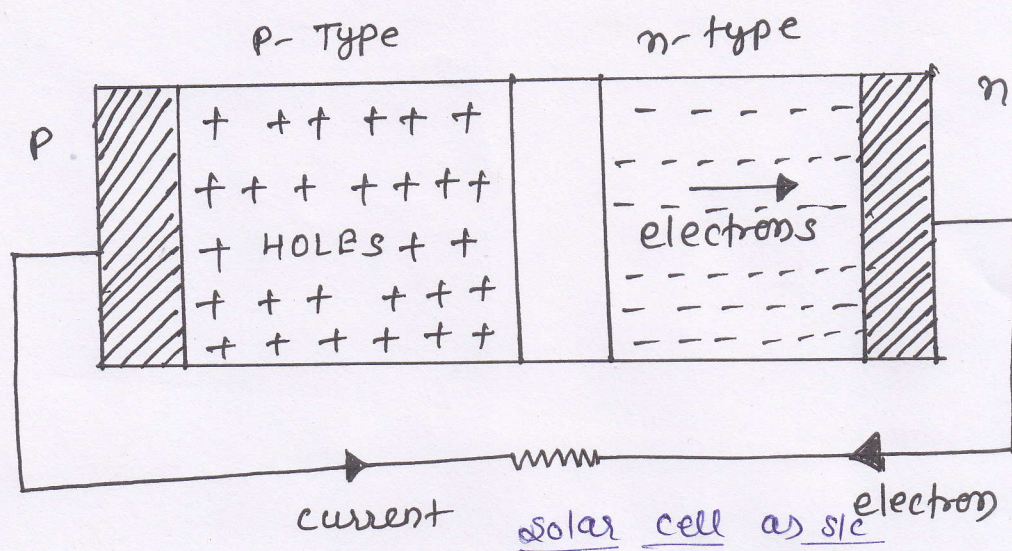 P- Type
n- type
P
n
+ + + + + +
+ + + + + + +
+ HOLES + +
+ + + + + +
+ + + + + +
electrons
current
electron
solar cell as s/c